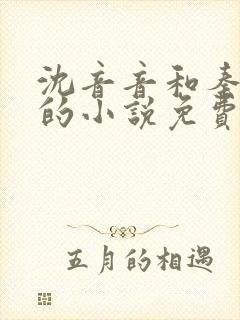 沈音音和秦
的小說免費
五月的相遇